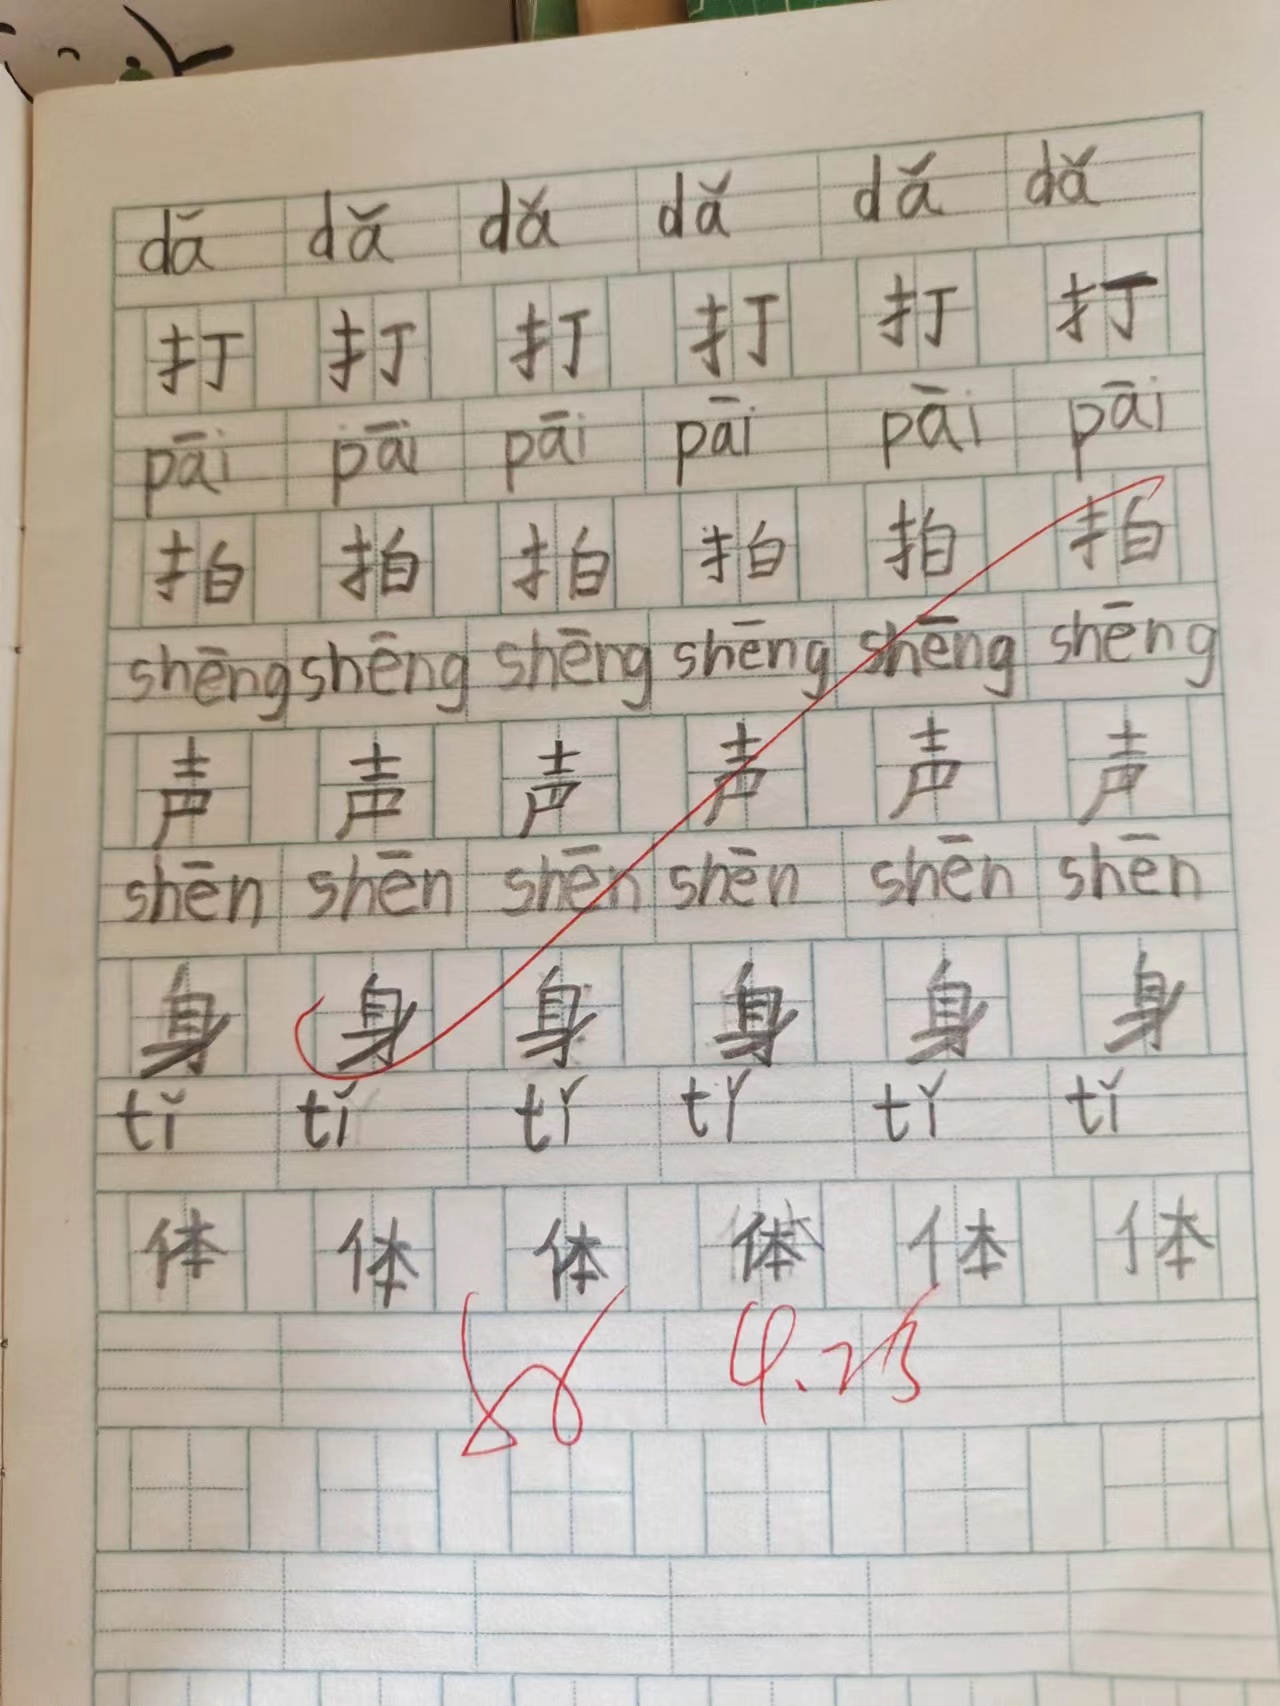 dǎ dǎ dǎ dǎ dǎ dǎ
打 打 打 打 打 打
pāi pāi pāi pāi pāi pāi
拍 拍 拍 拍 拍 拍
shēng shēng shēng shēng shēng shēng
声 声 声 声 声 声
shēn shēn shēn shēn shēn shēn
身 身 身 身 身 身
tǐ tǐ tǐ tǐ tǐ tǐ
体 体 体 体 体 体
4.25